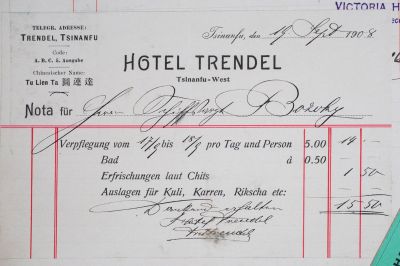 VICTORIA H
TELEGR. ADRESSE:
TRENDEL, TSINANFU
Code:
A. B. C. 5. Ausgabe
Chinesischer Name:
Tu Lien Ta 圖連達
Tsinanfu, den 19 Sept 1908
HOTEL TRENDEL
Tsinanfu-West
Nota für Herrn
Verpflegung vom 17/9 bis 18/9 pro Tag und Person 5.00 14.-
Bad á 0.50
Erfrischungen laut Chits 1 50
Auslagen für Kuli, Karren, Rikscha etc: 15.50
Dankend erhalten
Hotel Trendel